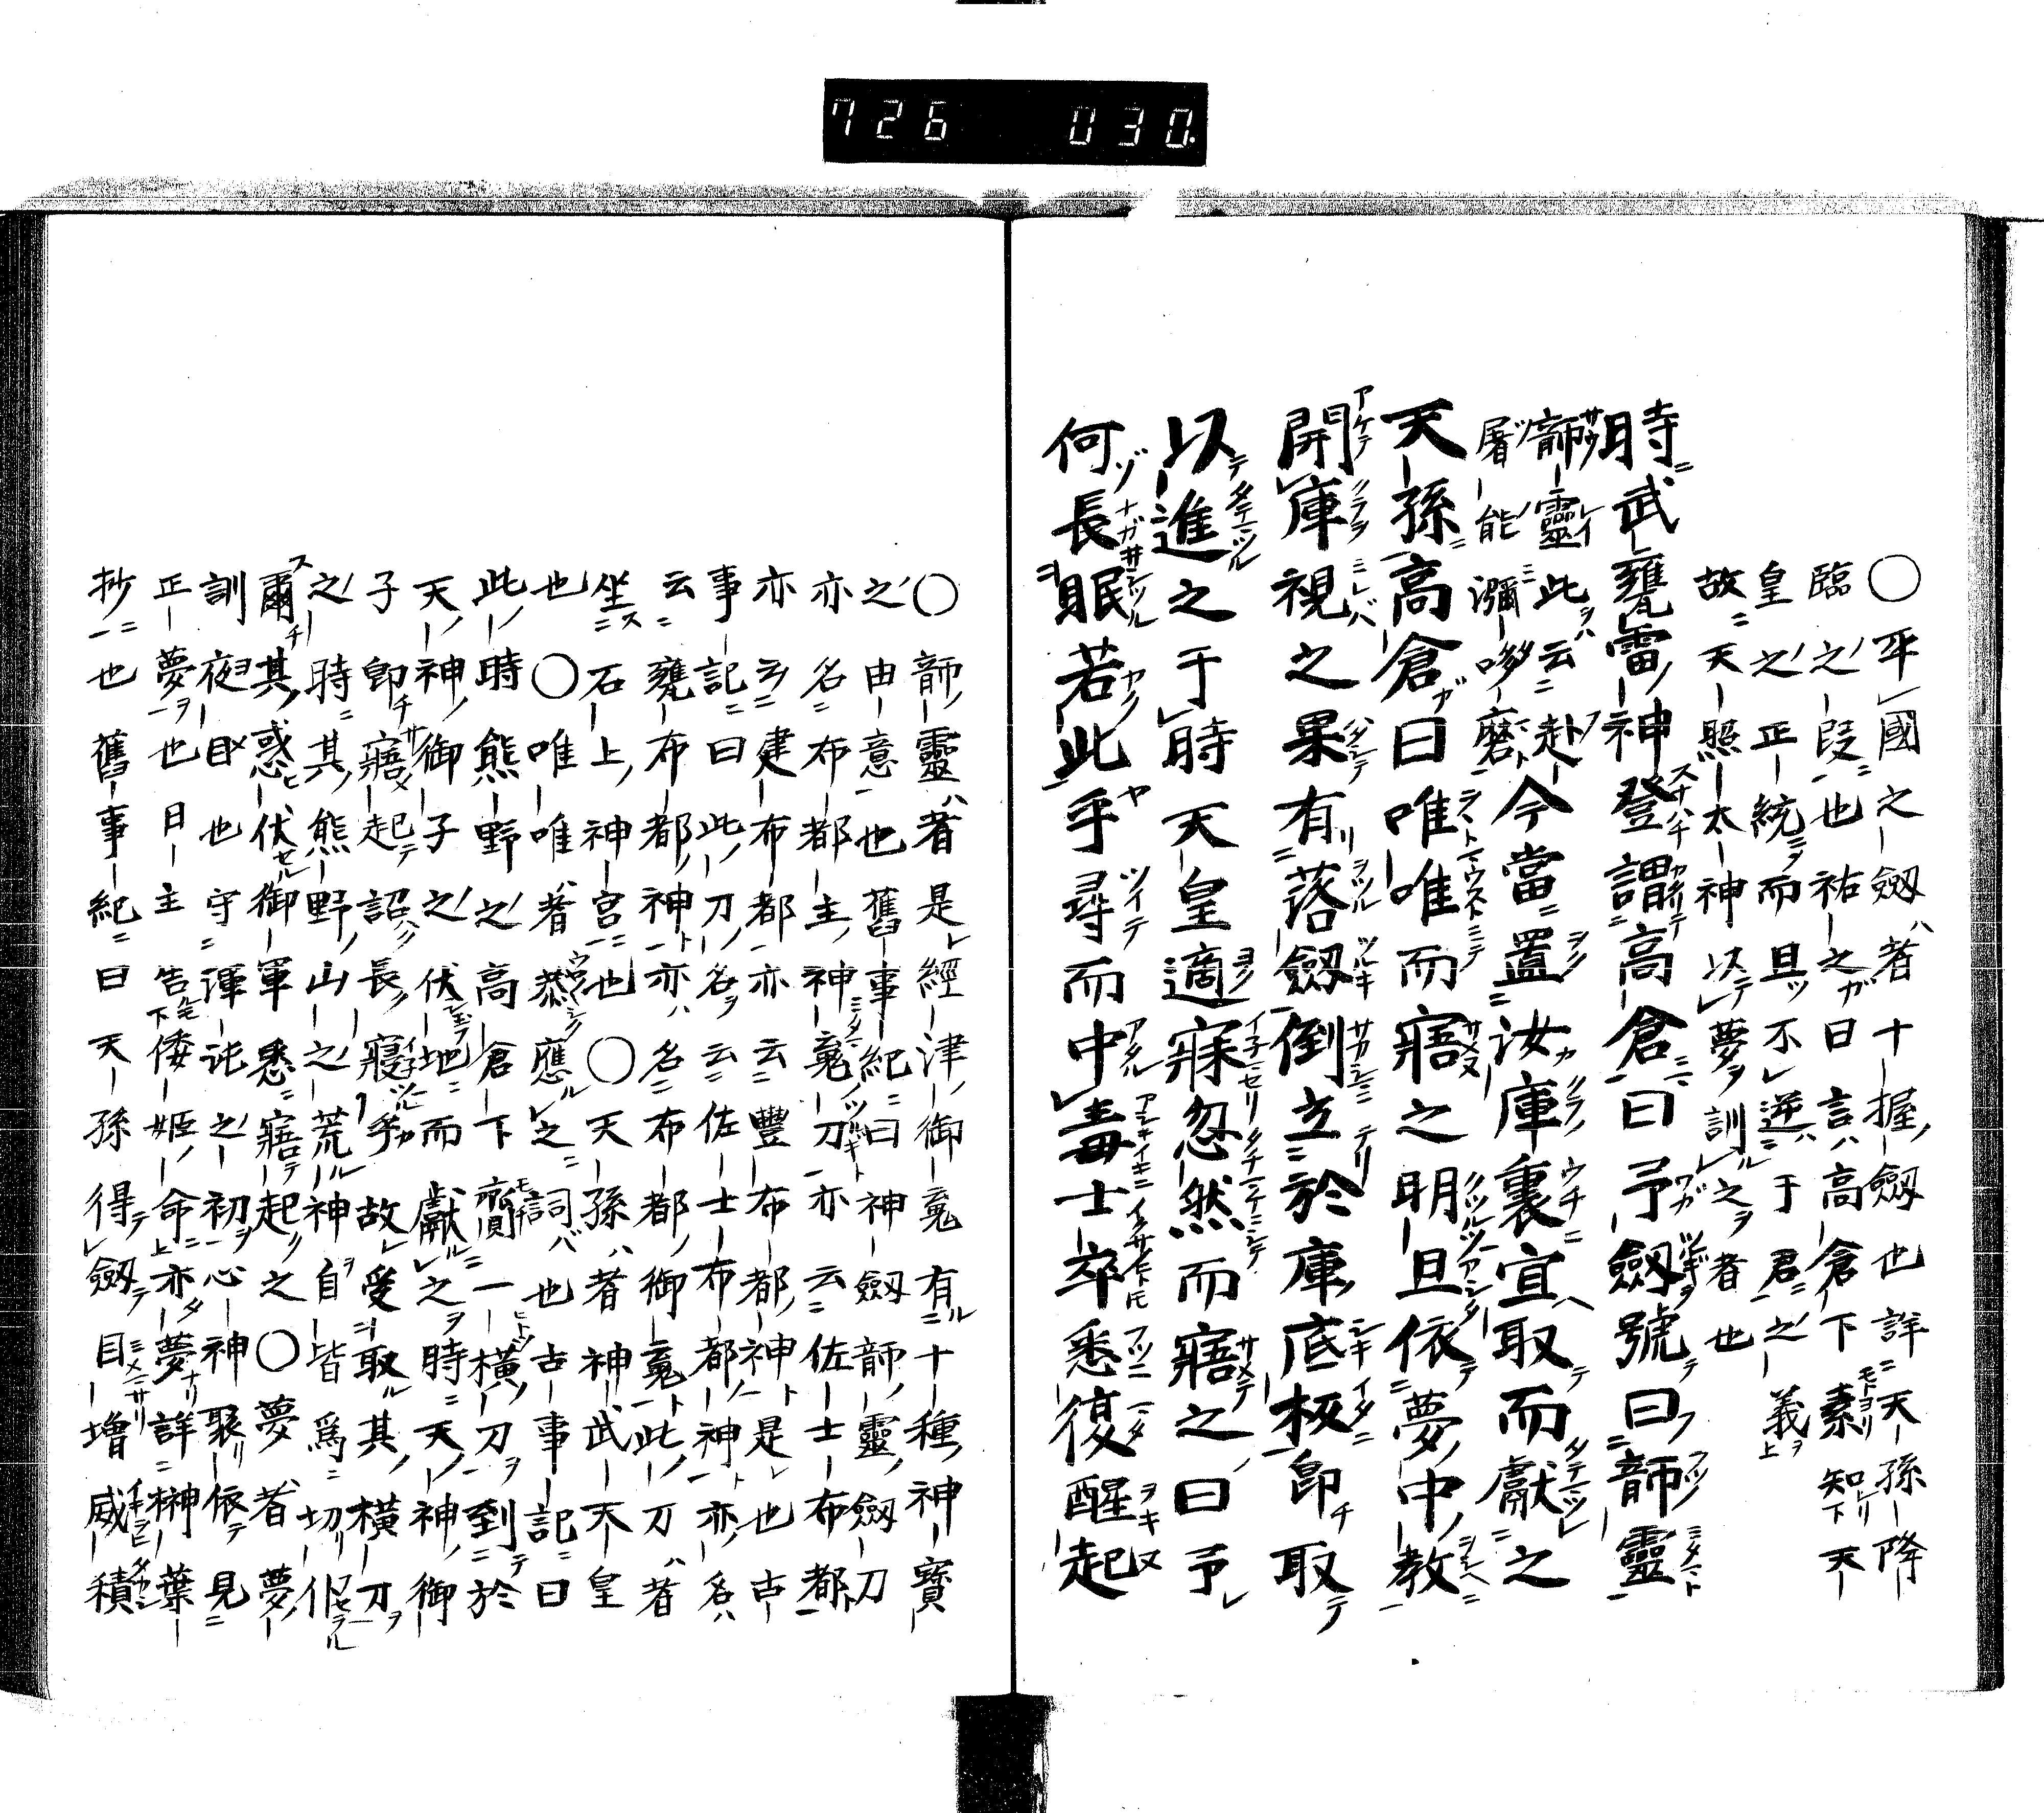 726 030.
○平國之劔者十握劔也詳天孫降
臨之段也祐之曰言高倉下素知天
皇之正統而且不逆于君之義
故天照太神以夢訓之者也
時武甕雷神登謂高倉曰予劔號曰韴靈
韴靈此云赴今當置汝庫裏宜取而獻之
屠能瀰哆磨
天孫高倉曰唯唯而寤之明旦依夢中教
開庫視之果有落劔倒立於庫底板卽取
以進之于時天皇適寐忽然而寤之曰予
何長眠若此乎尋而中毒士卒悉復醒起
○韴靈者是經津御䰟有十種神寶
之由意也舊事紀曰神劔韴靈劔刀
亦名布都主神䰟刀亦云佐士布都
亦云建布都亦云豐布都神是也古
事記曰此刀名云佐士布都神亦名
云甕布都神亦名布都御䰟此刀者
坐石上神宮也○天孫者神武天皇
也○唯唯者恭應之詞也古事記曰
此時熊野之高倉下齎一橫刀到於
天神御子之伏地而獻之時天神御
子卽寤起詔長寢乎故受取其橫刀
之時其熊野山之荒神自皆爲切仆
爾其惑伏御軍悉寤起之○夢者夢
訓夜目也守渾沌之初心神聚依見
正夢也日主告倭姬命亦夢詳榊葉
抄也舊事紀曰天孫得劔目增威積